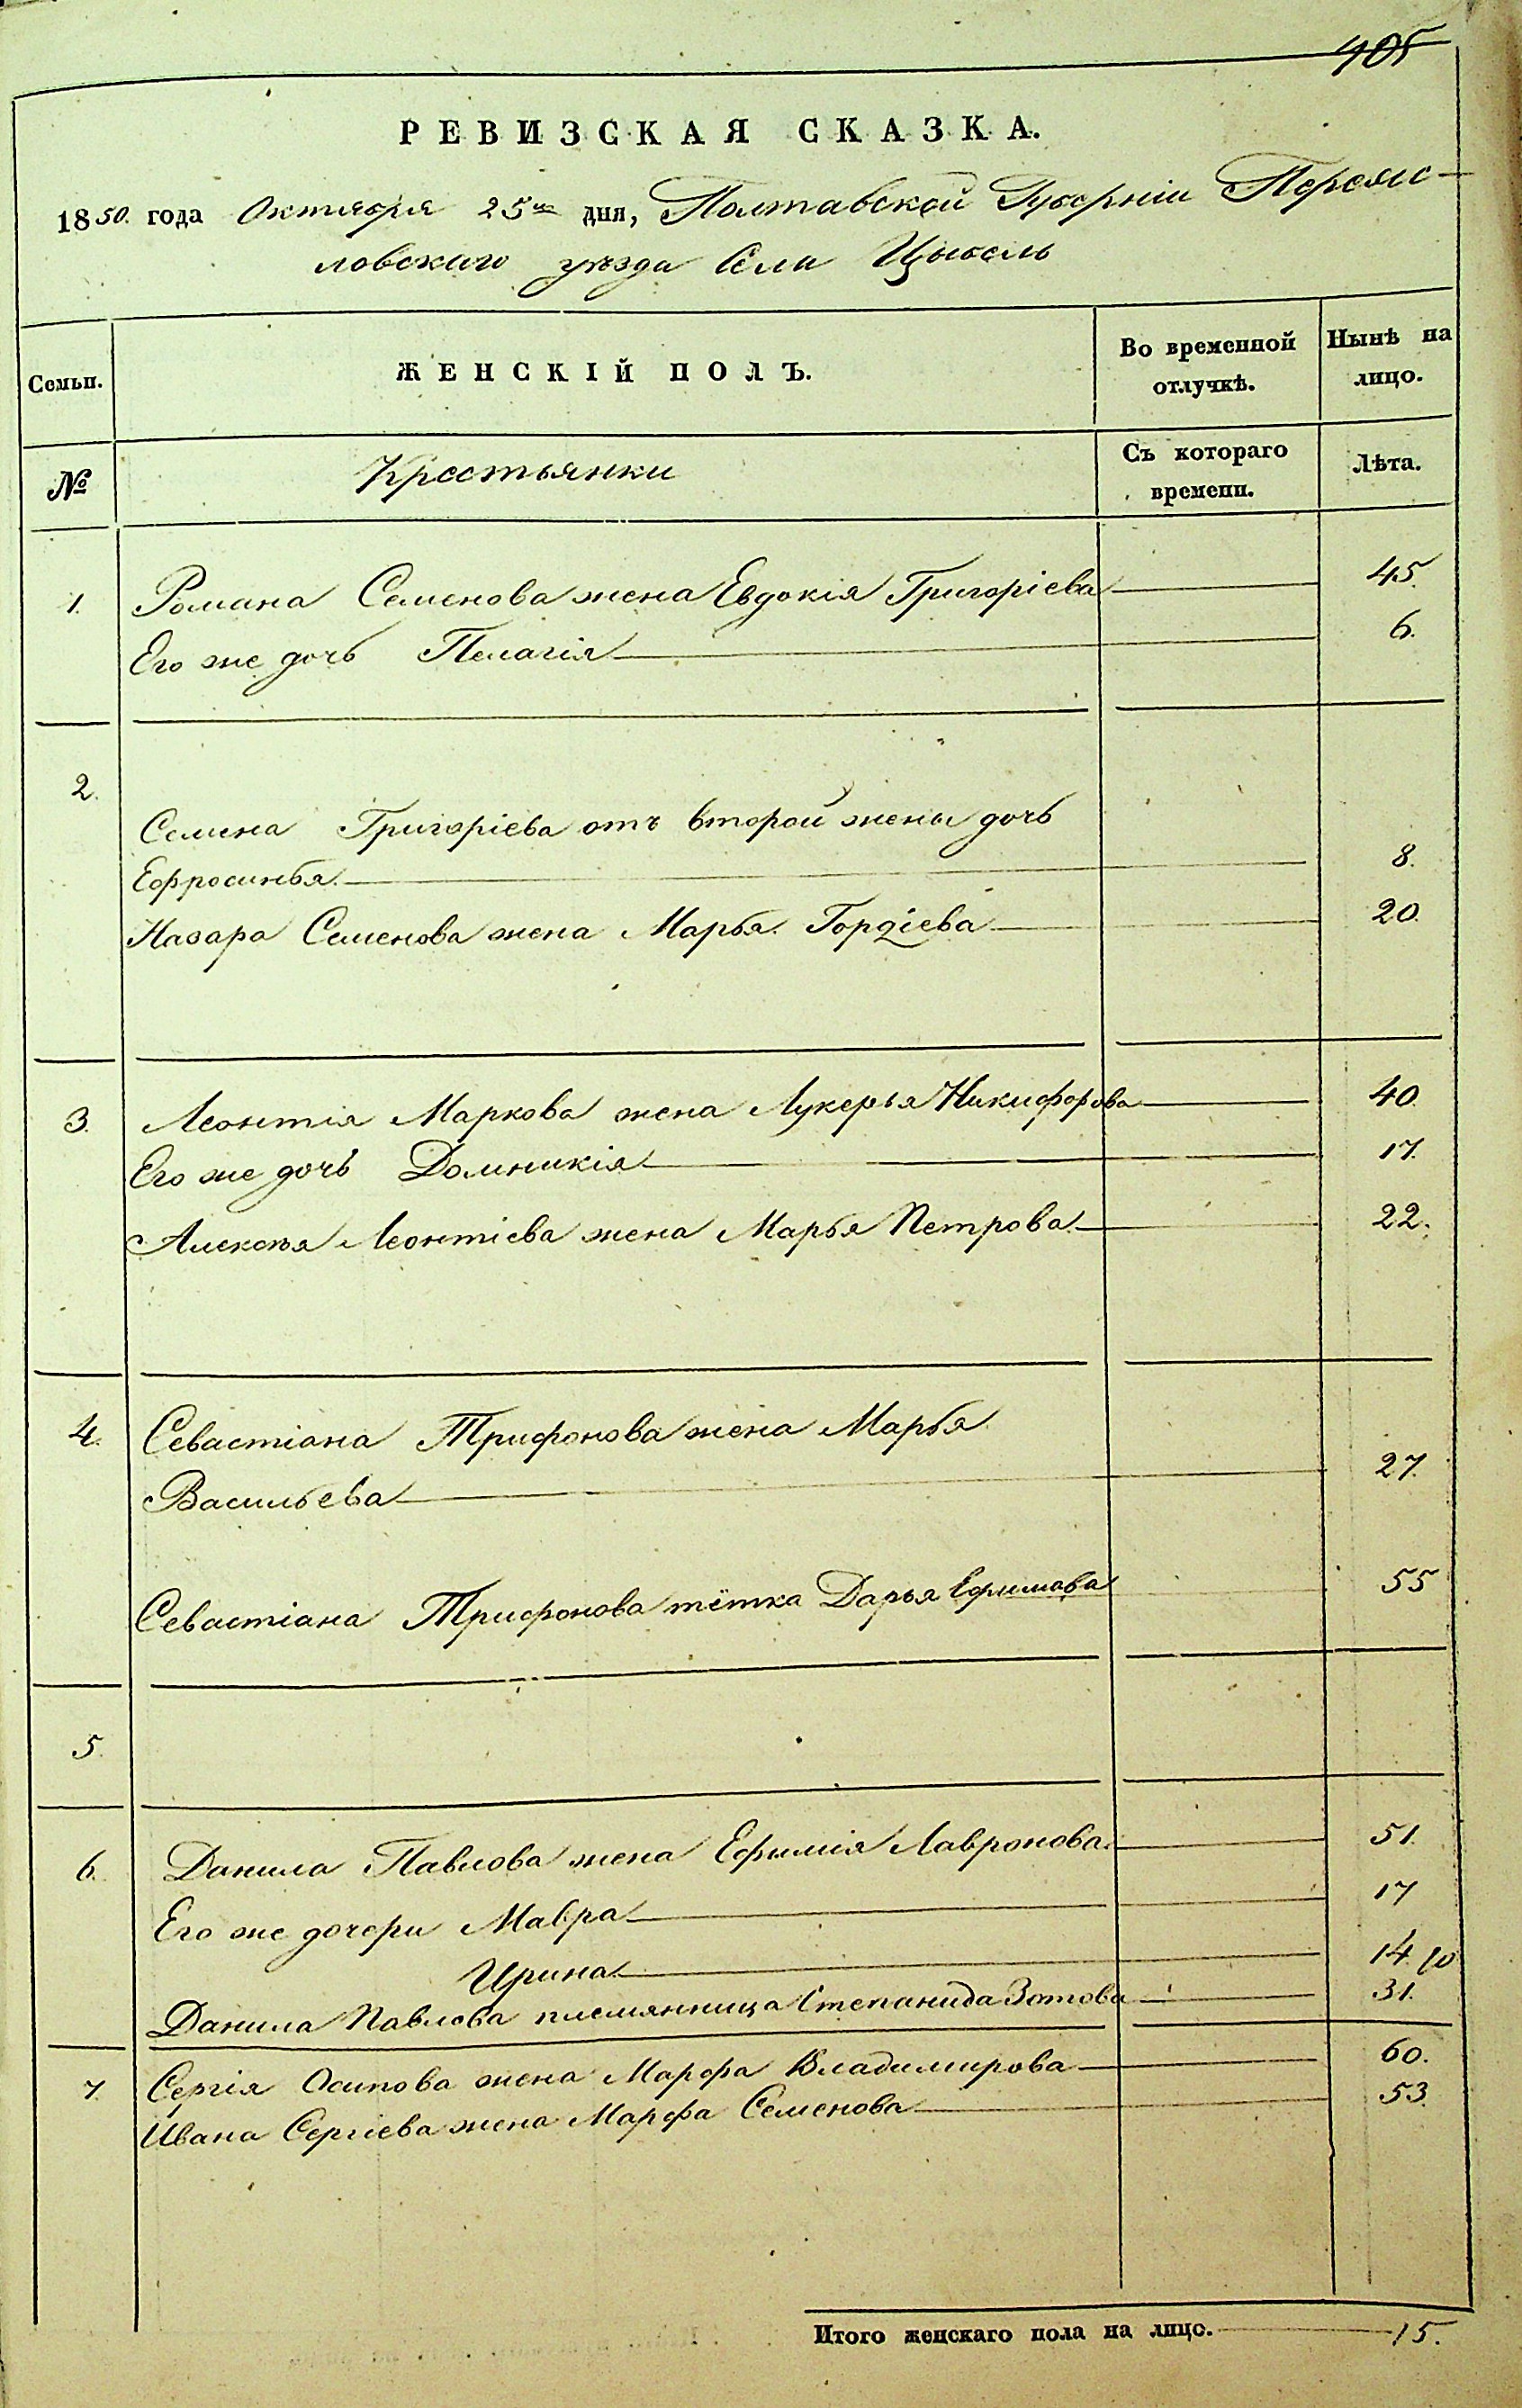 405
РЕВИЗСКАЯ СКАЗКА.
1850. года Октября 25го дня, Полтавской Губерніи Переяс-
ловскаго уѣзда Села Цыбель
Семьи.
ЖЕНСКІЙ ПОЛЪ.
Во временной отлучкѣ.
Нынѣ на лицо.
№
Крестьянки
Съ котораго времени.
Лѣта.
1. Романа Семенова жена Евдокія Григоріева 45.
Его же дочь Пелагія 6.
2.
Семена Григоріева отъ второй жены дочь
Ефросинья 8.
Назара Семенова жена Марья Гордіева 20.
3. Леонтія Маркова жена Лукерья Никифорова 40.
Его же дочь Домникія 17.
Алексѣя Леонтіева жена Марья Петрова 22.
4. Севастіана Трифонова жена Марья
Васильева 27.
Севастіана Трифонова тётка Дарья Ефимова 55
5.
6. Данила Павлова жена Ефимія Лавронова. 51.
Его же дочери Мавра 17
Ирина 14.
Данила Павлова племянница Степанида Зотова 31.
7. Сергія Осипова жена Марфа Владимирова 60.
Ивана Сергіева жена Марфа Семенова 53.
Итого женскаго пола на лицо. 15.